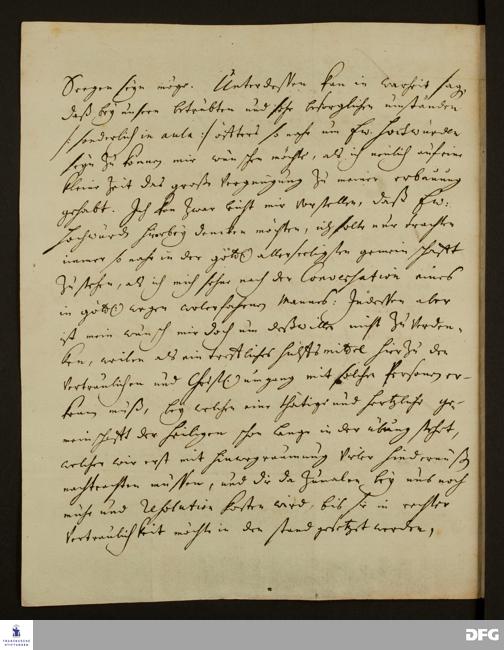 Seegen seyn möge. Unterdessen kan in warheit sag,
daß bey unsern betrübten und sehr besorglichen umständen
/: sonderlich in aula :/ öffters so nahe um Ew. Hochwürden
seyn zu können mir wünschen möchte, als ich neulich auf eine
kleine Zeit das große Vergnügung zu meiner erbauung
gehabt. Ich kan zwar leicht mir vorstellen, daß Ew:
Hochwürd hierbey dencken möchten, ich solte nur trachten
immer so nahe in der göttl allerseeligsten gemeinschafft
zu stehen, als ich mich sehne nach der Conversation eines
in göttl wegen wolerfahrnen Mannes: Indessen aber
ist mein wunsch mir doch um deßwillen nicht zu verden-
ken, weilen als ein treffliches hülffsmittel hierzu den
vertraulichen und Christl umgang mit solchen Personen er-
kennen muß, bey welchen eine thätige und hertzliche ge-
meinschafft der Heiligen schon lange in der übung stehet,
welcher wir erst mit hinwegräumung vieler hindernüß
nachtrachten müssen, und die da zumalen bey uns noch
mühe und Resolution kosten wird, bis sie in rechter
vertraulichkeit möchte in den stand gesetzet werden,
FRANCKESCHE STIFTUNGEN
DFG